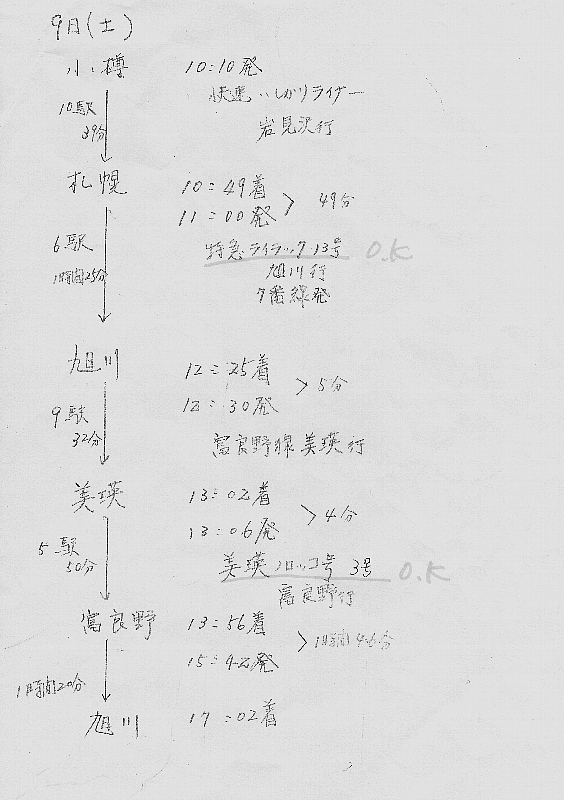 9日(土)
小樽 10:10発
快速 いしかりライナー
10駅
39分
岩見沢行
札幌 10:49着
11:00発 > 49分
6駅
1時間25分
特急ライラック13号 O.K
旭川行
7番線発
旭川 12:25着
12:30発 > 5分
9駅
32分
富良野線美瑛行
美瑛 13:02着
13:06発 > 4分
5駅
50分
美瑛ノロッコ号 3号 O.K
富良野行
富良野 13:56着
15:42発 > 1時間46分
1時間20分
旭川 17:02着